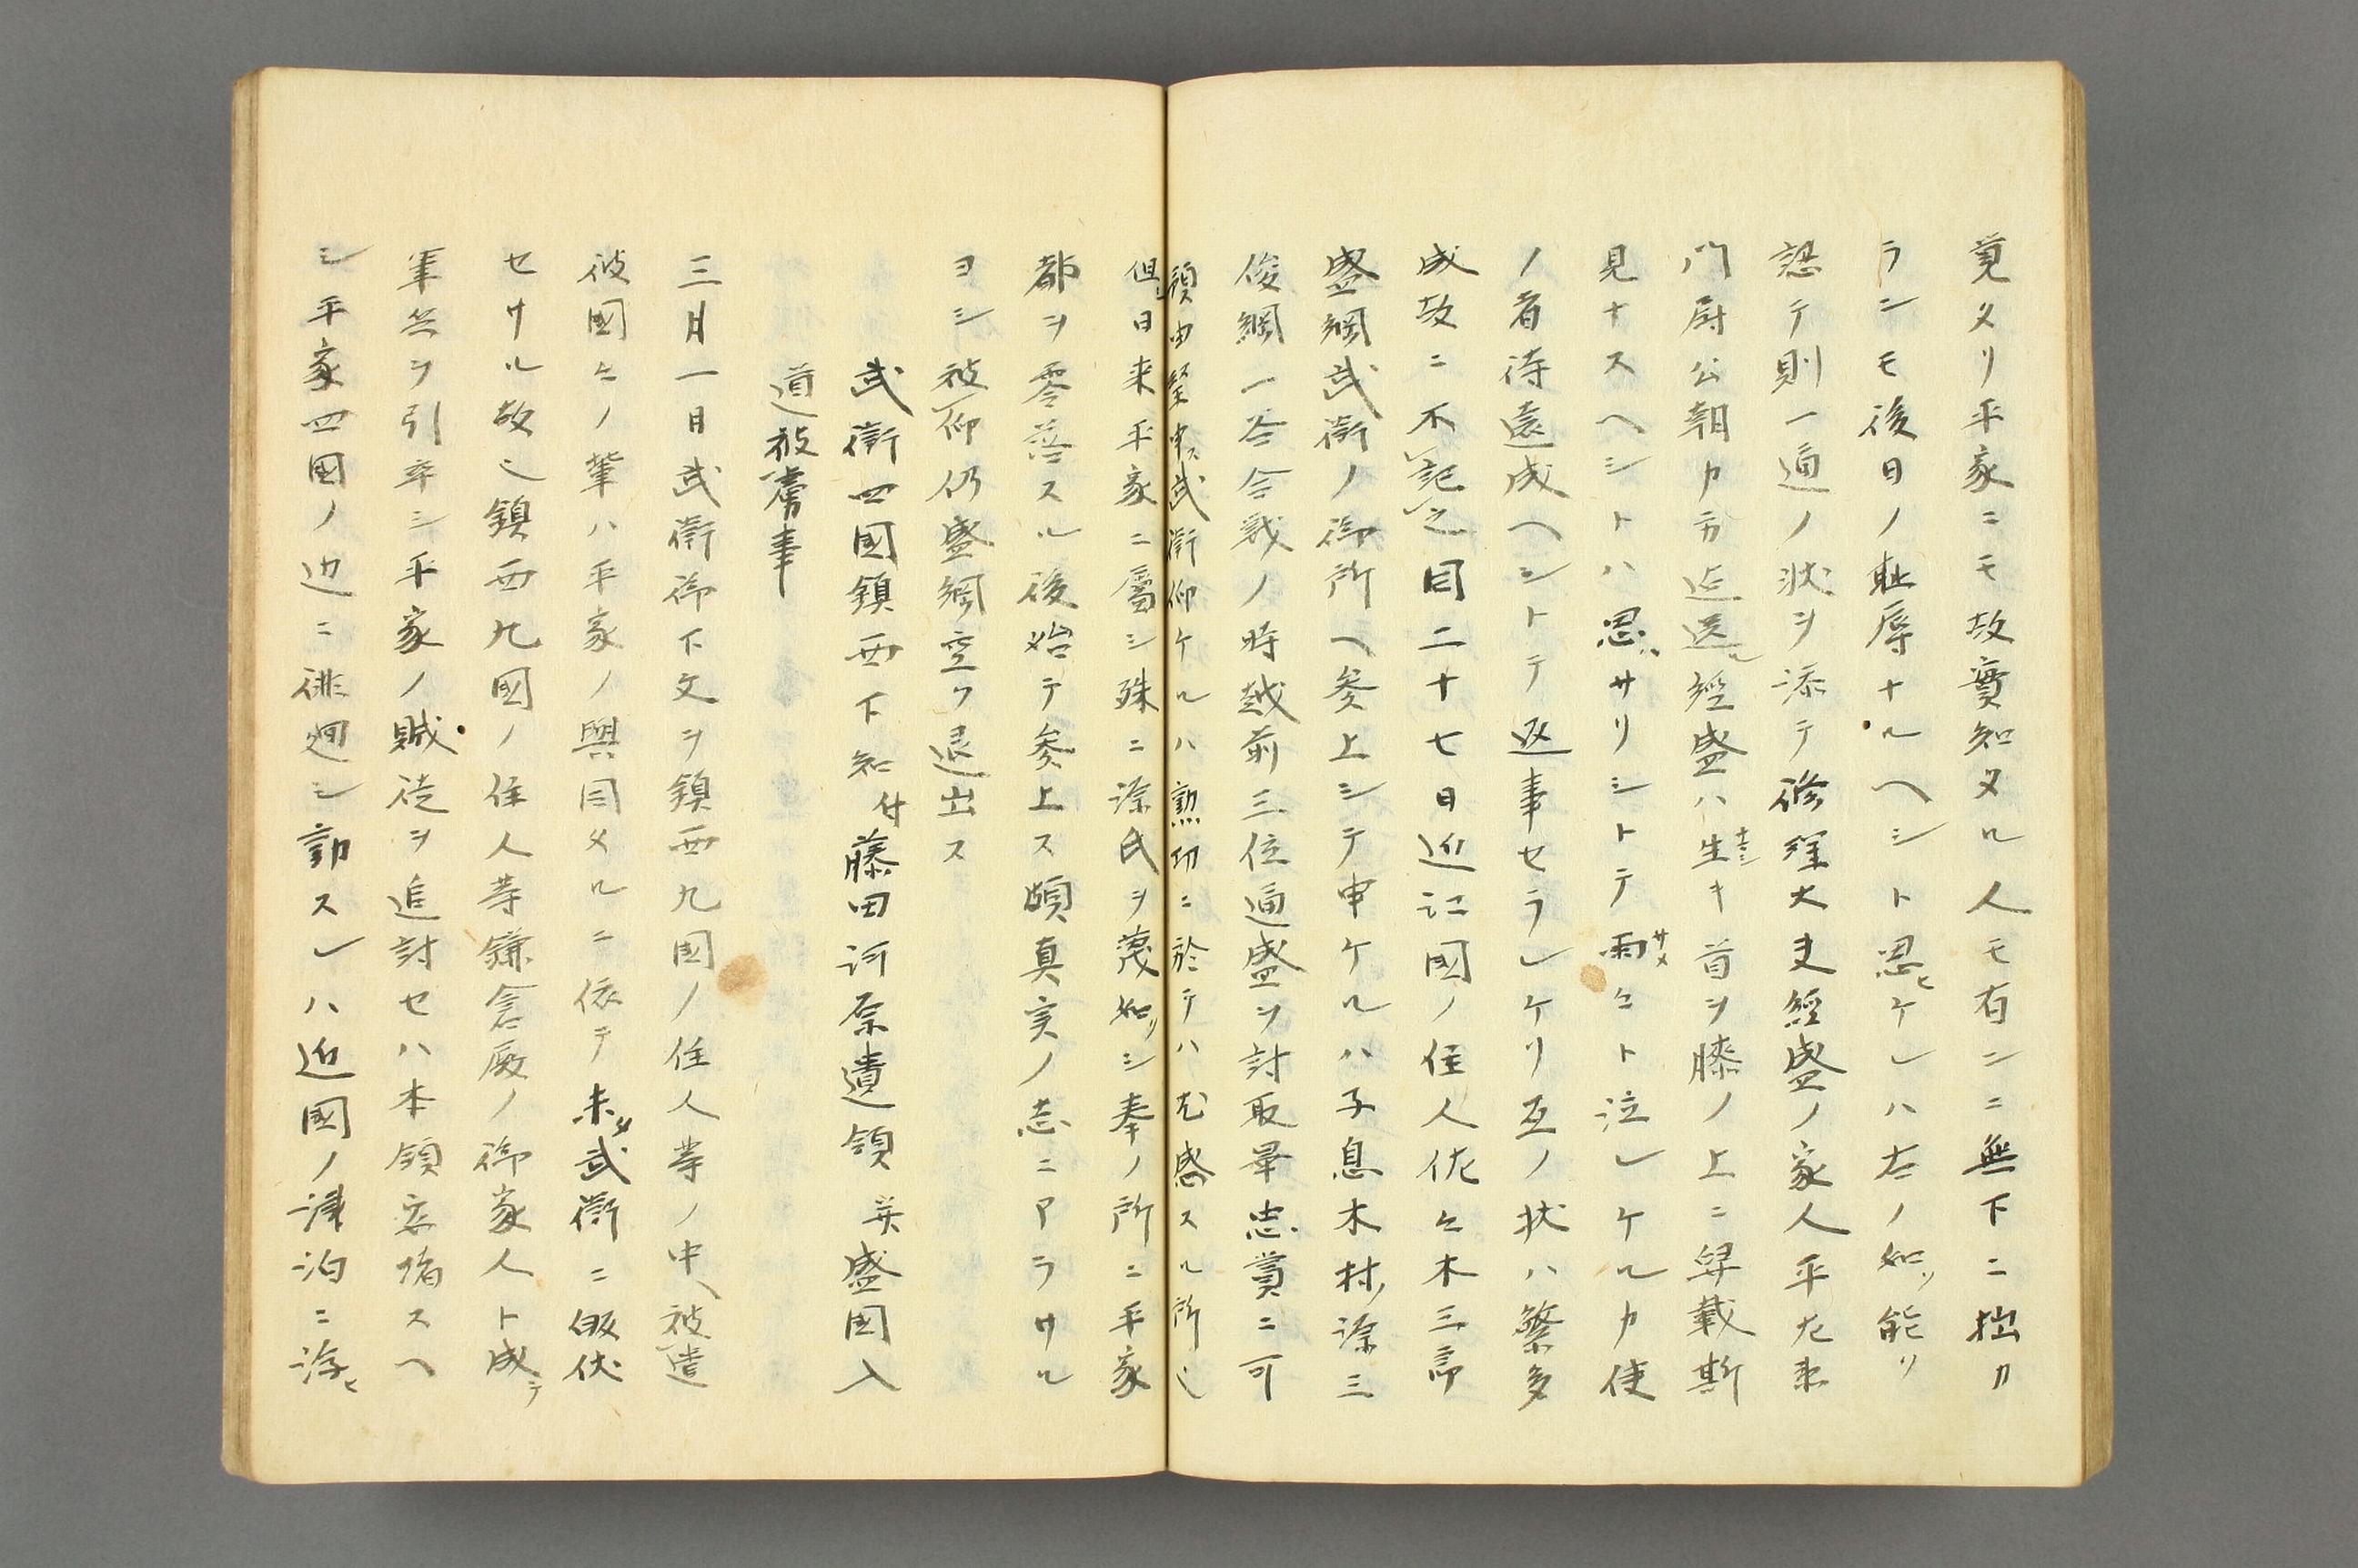 覚タリ平家ニモ故實知タル人モ有ンニ無下ニ拙カ
ランモ後日ノ耻辱ナルヘシト思ヒケレハ右ノ如ソ能リ
認テ則一通ノ状ヲ添テ修理大夫經盛ノ家人平左衛
門尉公朝カ方迄送ル經盛ハ生ナキ首ヲ膝ノ上ニ舁載斯
見ナスヘシトハ思ハサリシトテ雨サメ々ト泣レケルカ使
ノ者待遠成ヘシトテ返事セラレケリ互ノ状ハ繁多
成故ニ不記之同二十七日近江國ノ住人佐々木三郎
盛綱武衛ノ御所ヘ参上シテ申ケルハ子息木村源三
俊綱一谷合戰ノ時越前三位通盛ヲ討取畢忠賞ニ可
預由望申ス武衛仰ケルハ勲功ニ於テハ尤感スル所也
但シ日来平家ニ属シ殊ニ源氏ヲ蔑如シ奉ノ所ニ平家
都ヲ零落スル後始テ参上ス頗真実ノ志ニアラサル
ヨシ被仰仍盛綱空ク退出ス
武衛四國鎮西下知付藤田河原遺領并盛国入
道被虜事
三月一日武衛御下文ヲ鎮西九國ノ住人等ノ中ヘ被遣
彼國々ノ輩ハ平家ノ與同タルニ依テ未タ武衛ニ皈伏
セサル故也鎮西九國ノ住人等鎌倉殿ノ御家人ト成テ
軍兵ヲ引率シ平家ノ賊徒ヲ追討セハ本領安堵スヘ
シ平家四國ノ辺ニ徘徊シ動スレハ近國ノ津泊ニ浮ヒ